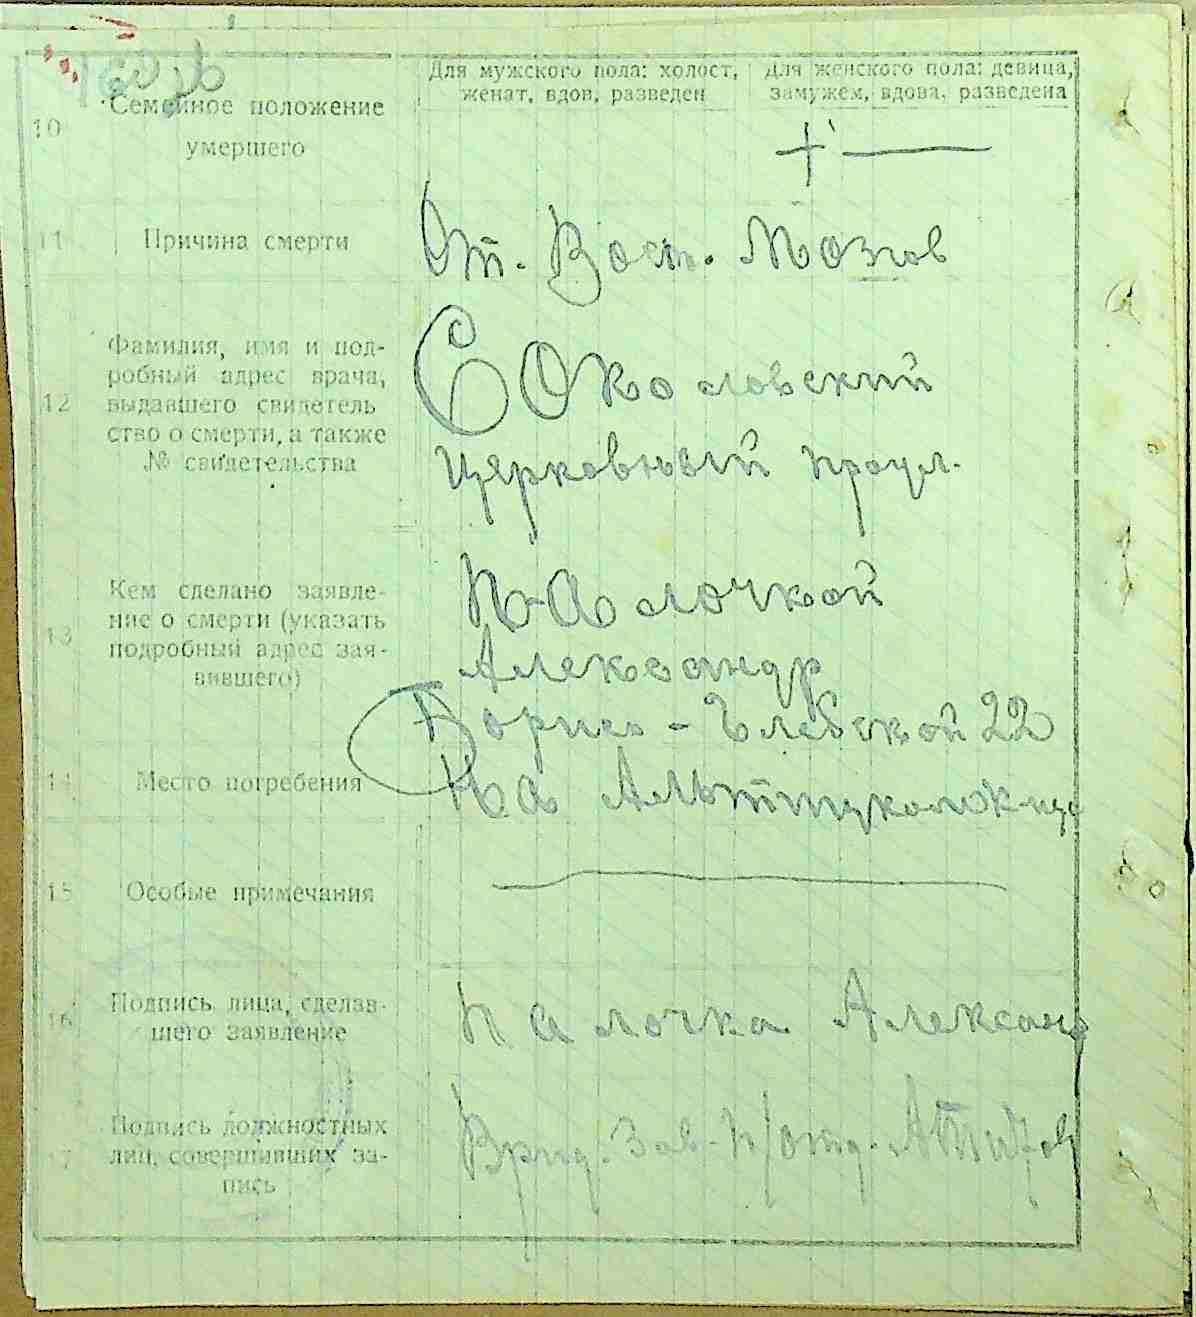 Для мужского пола: холост,
женат, вдов, разведен
Для женского пола: девица,
замужем, вдова, разведена
10
Семейное положение
умершего
11
Причина смерти
От. Восп. Мозгов
12
Фамилия, имя и под-
робный адрес врача,
выдавшего свидетель
ство о смерти, а также
№ свидетельства
Сокословский
Церковный проул.
13
Кем сделано заявле-
ние о смерти (указать
подробный адрес зая-
вившего)
Палочкой
Александр
Борисо-Глебской 22
14
Место погребения
На
15
Особые примечания
16
Подпись лица, сделав-
шего заявление
Палочка Александр
17
Подпись должностных
лиц, совершивших за-
пись
Врид. Зав. П/отд.